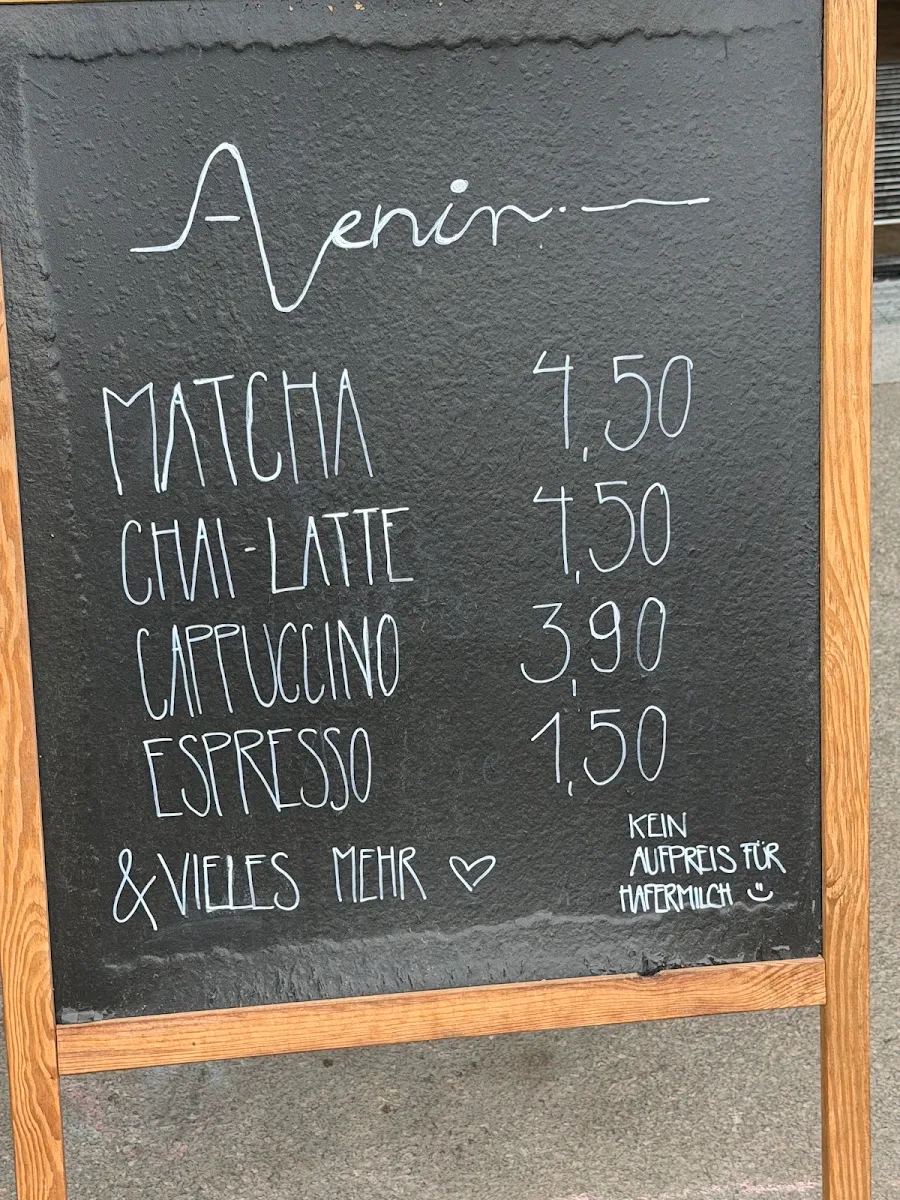 Avenir.
MATCHA 4,50
CHAI-LATTE 4,50
CAPPUCCINO 3,90
ESPRESSO 1,50
& VIELES MEHR ♡
KEIN
AUFPREIS FÜR
HAFERMILCH ☺